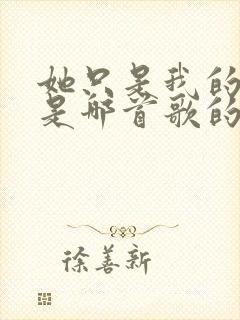 她只是我的
是那首歌的
徐善新